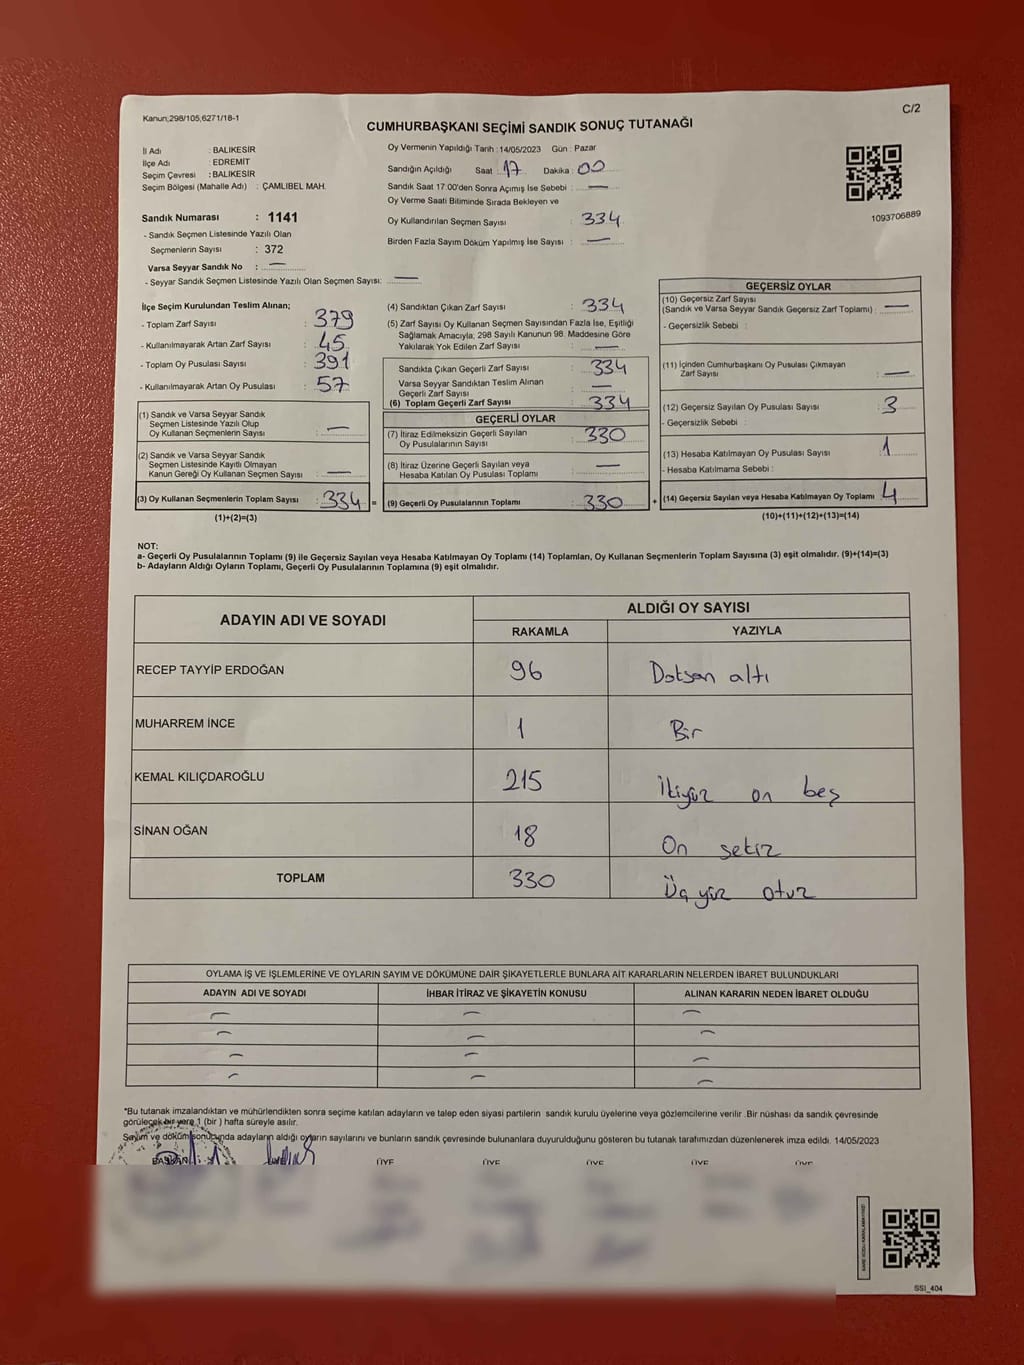 Kanun;298/105,6271/18-1
C/2
CUMHURBAŞKANI SEÇİMİ SANDIK SONUÇ TUTANAĞI
İl Adı : BALIKESİR
İlçe Adı : EDREMİT
Seçim Çevresi : BALIKESİR
Seçim Bölgesi (Mahalle Adı) : ÇAMLIBEL MAH.
Sandık Numarası : 1141
- Sandık Seçmen Listesinde Yazılı Olan
Seçmenlerin Sayısı : 372
Varsa Seyyar Sandık No : —
- Seyyar Sandık Seçmen Listesinde Yazılı Olan Seçmen Sayısı: —
Oy Vermenin Yapıldığı Tarih : 14/05/2023 Gün : Pazar
Sandığın Açıldığı Saat : 17 Dakika : 00
Sandık Saat 17:00'den Sonra Açımış İse Sebebi : —
Oy Verme Saati Bitiminde Sırada Bekleyen ve
Oy Kullandırılan Seçmen Sayısı : 334
Birden Fazla Sayım Döküm Yapılmış İse Sayısı : —
1093706889
İlçe Seçim Kurulundan Teslim Alınan;
- Toplam Zarf Sayısı : 379
- Kullanılmayarak Artan Zarf Sayısı : 45
- Toplam Oy Pusulası Sayısı : 391
- Kullanılmayarak Artan Oy Pusulası : 57
(1) Sandık ve Varsa Seyyar Sandık
Seçmen Listesinde Yazılı Olup
Oy Kullanan Seçmenlerin Sayısı : —
(2) Sandık ve Varsa Seyyar Sandık
Seçmen Listesinde Kayıtlı Olmayan
Kanun Gereği Oy Kullanan Seçmen Sayısı : —
(3) Oy Kullanan Seçmenlerin Toplam Sayısı : 334 =
(1)+(2)=(3)
(4) Sandıktan Çıkan Zarf Sayısı : 334
(5) Zarf Sayısı Oy Kullanan Seçmen Sayısından Fazla İse, Eşitliği
Sağlamak Amacıyla, 298 Sayılı Kanunun 98. Maddesine Göre
Yakılarak Yok Edilen Zarf Sayısı : —
Sandıkta Çıkan Geçerli Zarf Sayısı : 334
Varsa Seyyar Sandıktan Teslim Alınan
Geçerli Zarf Sayısı : —
(6) Toplam Geçerli Zarf Sayısı : 334
GEÇERLİ OYLAR
(7) İtiraz Edilmeksizin Geçerli Sayılan
Oy Pusulalarının Sayısı : 330
(8) İtiraz Üzerine Geçerli Sayılan veya
Hesaba Katılan Oy Pusulası Toplamı : —
(9) Geçerli Oy Pusulalarının Toplamı : 330 +
GEÇERSİZ OYLAR
(10) Geçersiz Zarf Sayısı
(Sandık ve Varsa Seyyar Sandık Geçersiz Zarf Toplamı) : —
- Geçersizlik Sebebi :
(11) İçinden Cumhurbaşkanı Oy Pusulası Çıkmayan
Zarf Sayısı : —
(12) Geçersiz Sayılan Oy Pusulası Sayısı : 3
- Geçersizlik Sebebi :
(13) Hesaba Katılmayan Oy Pusulası Sayısı : 1
- Hesaba Katılmama Sebebi :
(14) Geçersiz Sayılan veya Hesaba Katılmayan Oy Toplamı : 4
(10)+(11)+(12)+(13)=(14)
NOT:
a- Geçerli Oy Pusulalarının Toplamı (9) ile Geçersiz Sayılan veya Hesaba Katılmayan Oy Toplamı (14) Toplamları, Oy Kullanan Seçmenlerin Toplam Sayısına (3) eşit olmalıdır. (9)+(14)=(3)
b- Adayların Aldığı Oyların Toplamı, Geçerli Oy Pusulalarının Toplamına (9) eşit olmalıdır.
ADAYIN ADI VE SOYADI ALDIĞI OY SAYISI
RAKAMLA YAZIYLA
RECEP TAYYİP ERDOĞAN 96 Doksan altı
MUHARREM İNCE 1 Bir
KEMAL KILIÇDAROĞLU 215 İkiyüz on beş
SİNAN OĞAN 18 On sekiz
TOPLAM 330 Üç yüz otuz
OYLAMA İŞ VE İŞLEMLERİNE VE OYLARIN SAYIM VE DÖKÜMÜNE DAİR ŞİKAYETLERLE BUNLARA AİT KARARLARIN NELERDEN İBARET BULUNDUKLARI
ADAYIN ADI VE SOYADI İHBAR İTİRAZ VE ŞİKAYETİN KONUSU ALINAN KARARIN NEDEN İBARET OLDUĞU
— — —
— — —
— — —
— — —
*Bu tutanak imzalandıktan ve mühürlendikten sonra seçime katılan adayların ve talep eden siyasi partilerin sandık kurulu üyelerine veya gözlemcilerine verilir .Bir nüshası da sandık çevresinde
görülecek bir yere 1 (bir ) hafta süreyle asılır.
Sayım ve döküm sonucunda adayların aldığı oyların sayılarını ve bunların sandık çevresinde bulunanlara duyurulduğunu gösteren bu tutanak tarafımızdan düzenlenerek imza edildi. 14/05/2023
BAŞKAN ÜYE ÜYE ÜYE ÜYE ÜYE
KARE KODU KARALAMAYINIZ!
SSI_404